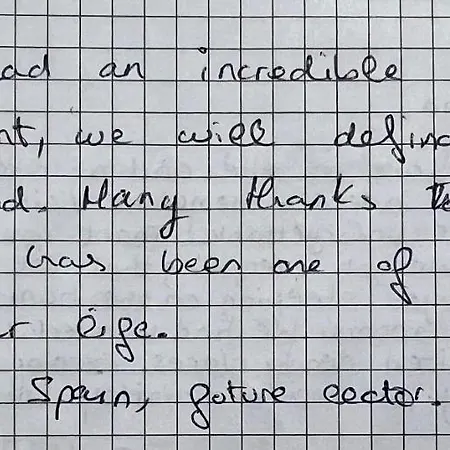 ad an incredible
nt, we will defin
d. Many thanks
has been one of
r life.
Spain, future doctor.